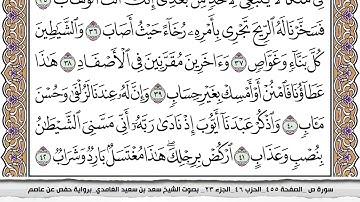 فَسَخَّرْنَا لَهُ ٱلرِّيحَ تَجْرِى بِأَمْرِهِۦ رُخَآءً حَيْثُ أَصَابَ ٣٦ وَٱلشَّيَٰطِينَ
كُلَّ بَنَّآءٍ وَغَوَّاصٍ ٣٧ وَءَاخَرِينَ مُقَرَّنِينَ فِى ٱلْأَصْفَادِ ٣٨ هَٰذَا
عَطَآؤُنَا فَٱمْنُنْ أَوْ أَمْسِكْ بِغَيْرِ حِسَابٍ ٣٩ وَإِنَّ لَهُۥ عِندَنَا لَزُلْفَىٰ وَحُسْنَ
مَـَٔابٍ ٤٠ وَٱذْكُرْ عَبْدَنَآ أَيُّوبَ إِذْ نَادَىٰ رَبَّهُۥٓ أَنِّى مَسَّنِىَ ٱلشَّيْطَٰنُ
بِنُصْبٍ وَعَذَابٍ ٤١ ٱرْكُضْ بِرِجْلِكَ هَٰذَا مُغْتَسَلٌۢ بَارِدٌ وَشَرَابٌ ٤٢
سورة ص . الصفحة ٤٥٥ . الحزب ٤٦ . الجزء ٢٣ . بصوت الشيخ سعد بن سعيد الغامدي . برواية حفص عن عاصم